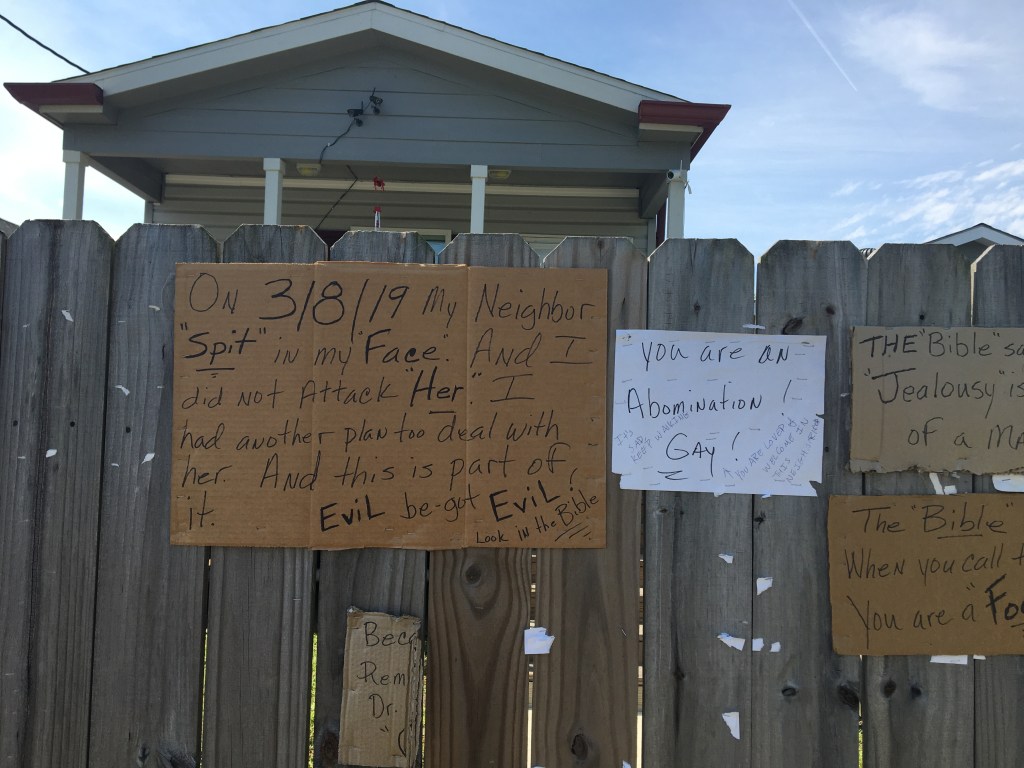 On 3/8/19 My Neighbor
"Spit" in my Face". And I
did not Attack "Her." I
had another plan too deal with
her. And this is part of
it. Evil be-gut Evil!
Look in the Bible
you are an
Abomination!
Gay!
It's
Sad
Keep Walking
You are loved &
welcome in
this
neighborhood
THE "Bible"
"Jealousy" is
of a
The "Bible"
When you call
You are a
Dr.